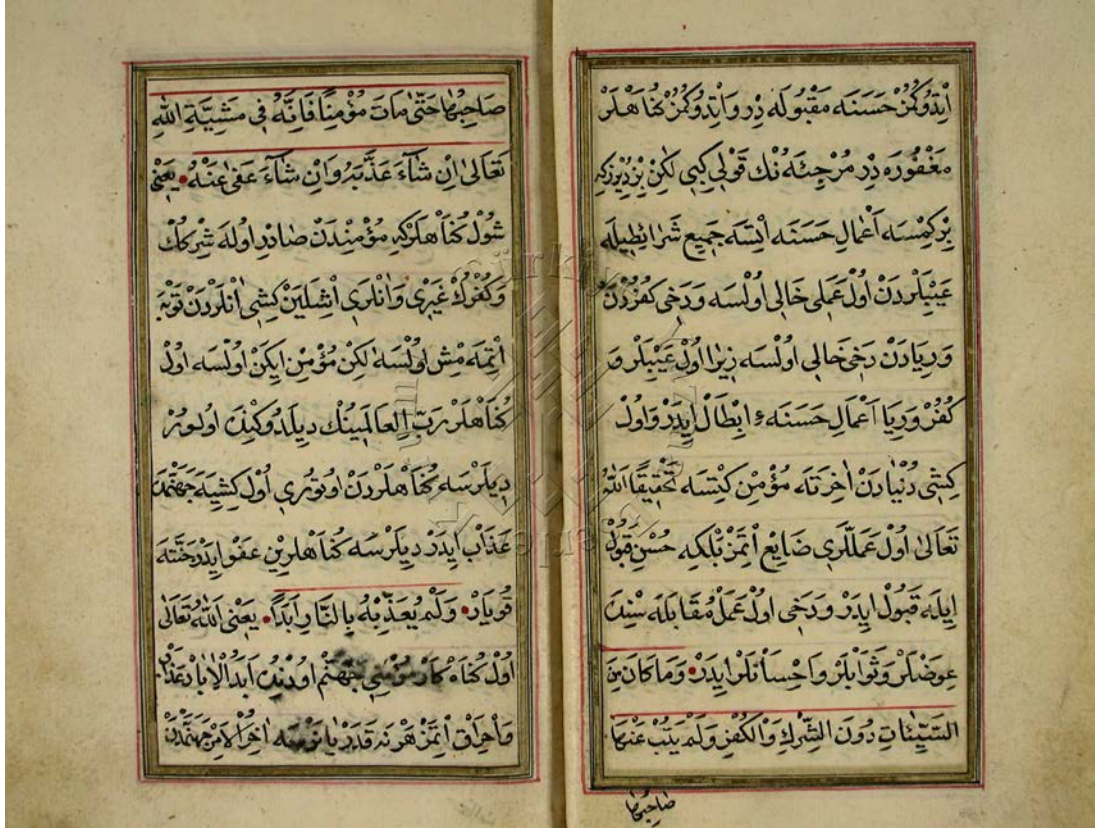 اِتْدُوكُمُزْ حَسَنَه مَقْبُولَه دِرْ وَاِتْدُوكُمُزْ كُنَاهْلَرْ
مَغْفُورَه دِرْ مُرْجِئَه نُكْ قَوْلِی كِبِی لٰكِنْ بِزْ دِیْرُزْكِه
بِرْ كِمْسَه اَعْمَالِ حَسَنَه اِتْسَه جَمِیعِ شَرَائِطِیلَه
عَیْبِلَرْدَنْ اُولْ عَمَلِی خَالِی اُولْسَه وَدَخِی كُفُرْدَنْ
وَرِیَادَنْ دَخِی خَالِی اُولْسَه زِیرَا اُولْ عَیْبِلَرْ وَ
كُفُرْ وَرِیَا اَعْمَالِ حَسَنَه ءِ اِبْطَالْ اِیدَرْ وَاُولْ
كِشِی دُنْیَادَنْ اٰخِرَتَه مُؤْمِنْ كِتْسَه تَحْقِیقًا اَللّٰهُ
تَعَالٰی اُولْ عَمَلْلَرِی ضَایِعْ اِتْمَزْ بَلْكِه حُسْنِ قَبُولْ
اِیلَه قَبُولْ اِیدَرْ وَدَخِی اُولْ عَمَلْ مُقَابَلَه سِنْدَه
عِوَضْلَرْ وَثَوَابْلَرْ وَاِحْسَانْلَرْ اِیدَرْ وَمَا كَانَ مِنَ
السَّيِّئَاتِ دُونَ الشِّرْكِ وَالْكُفْرِ وَلَمْ يَتُبْ عَنْهَا
صَاحِبُهَا
صَاحِبُهَا حَتّٰى مَاتَ مُؤْمِنًا فَاِنَّهُ فِى مَشِيَّةِ اللّٰهِ
تَعَالٰى اِنْ شَآءَ عَذَّبَهُ وَاِنْ شَآءَ عَفٰى عَنْهُ یَعْنِی
شُولْ كُنَاهْلَرْكِه مُؤْمِنْدَنْ صَادِرْ اُولَه شِرْكُكْ
وَكُفْرُكْ غَیْرِی وَاٰنْلَرِی اِشْلَیَنْ كِشِی اٰنْلَرْدَنْ تَوْبَه
اِتْمَه مِشْ اُولْسَه لٰكِنْ مُؤْمِنْ اِیكَنْ اُولْسَه اُولْ
كُنَاهْلَرْ رَبِّ الْعَالَمِینُكْ دِیلَدُوكِینَه اُولُورْ
دِیلَرْسَه كُنَاهْلَرْدَنْ اُوتُورِی اُولْ كِشِیَه جَهَنَّمْدَه
عَذَابْ اِیدَرْ دِیلَرْسَه كُنَاهْلَرِینْ عَفْو اِیدَرْ جَنَّتَه
قُویَارْ وَلَمْ يُعَذِّبْهُ بِالنَّارِ اَبَدًا یَعْنِی اَللّٰهُ تَعَالٰی
اُولْ كُنَاهْكَارْ مُؤْمِنِی جَهَنَّمْ اُودِنْدَه اَبَدُ الْاٰبَادْ عَذَابْ
وَاِحْرَاقْ اِتْمَزْ هَرْ نَه قَدَرْ یَانَرْسَه اٰخِرُ الْاَمْرْ جَهَنَّمْدَنْ